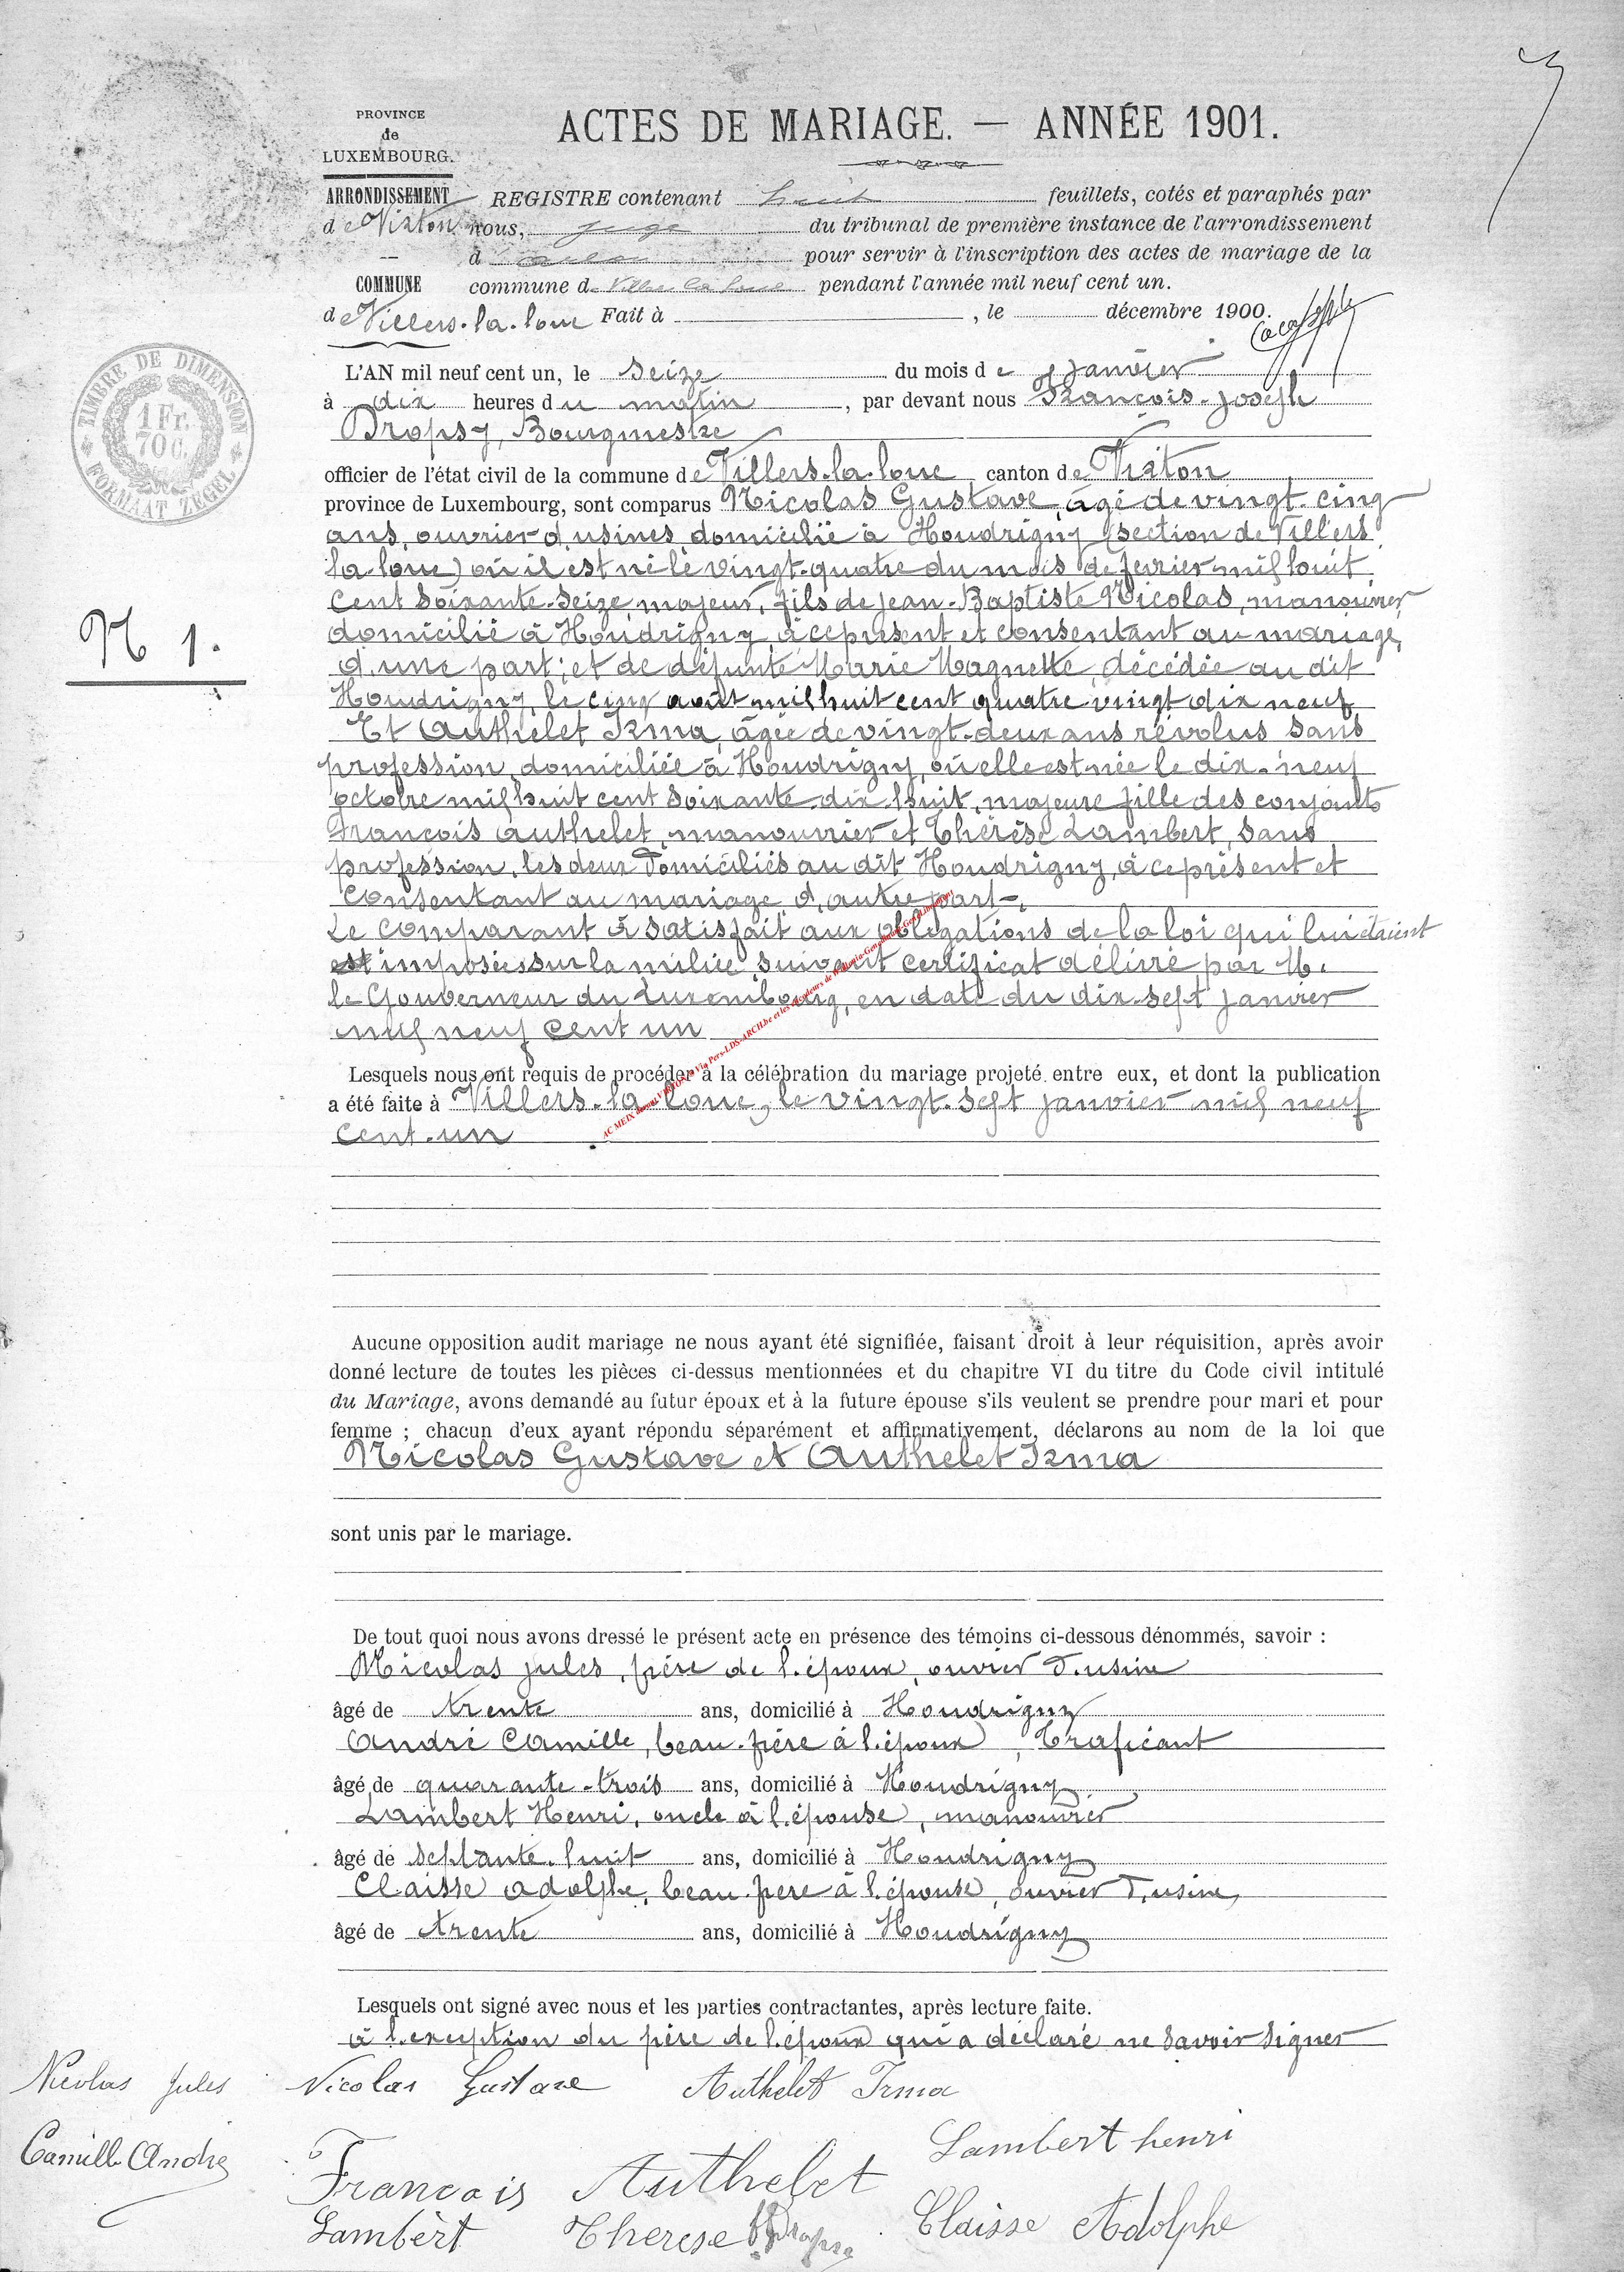 PROVINCE
de
LUXEMBOURG.
ACTES DE MARIAGE. — ANNÉE 1901.
ARRONDISSEMENT
de Virton
COMMUNE
de Villers-la-loue
REGISTRE contenant huit feuillets, cotés et paraphés par
nous, juge du tribunal de première instance de l'arrondissement
d arlon pour servir à l'inscription des actes de mariage de la
commune de Villers la loue pendant l'année mil neuf cent un.
Fait à , le décembre 1900.
TIMBRE DE DIMENSION
1 Fr.
70 C.
FORMAAT ZEGEL
N 1.
L'AN mil neuf cent un, le seize du mois de janvier
à dix heures du matin, par devant nous François-Joseph
Propsy, Bourgmestre
officier de l'état civil de la commune de Villers-la-loue canton de Virton
province de Luxembourg, sont comparus Nicolas Gustave, âgé de vingt-cinq
ans, ouvrier d'usines domicilié à Houdrigny (section de Villers
la-loue) où il est né le vingt-quatre du mois de fevrier mil huit
cent soixante-seize majeur, fils de Jean-Baptiste Nicolas, manouvrier
domicilié à Houdrigny à ce présent et consentant au mariage,
d'une part; et de défunte Marie Magnette, décédée au dit
Houdrigny, le cinq août mil huit cent quatre vingt dix neuf
Et Authelet Irma, âgée de vingt-deux ans révolus sans
profession, domiciliée à Houdrigny, où elle est née le dix-neuf
octobre mil huit cent soixante-dix huit, majeure fille des conjoints
François Authelet, manouvrier et Thérèse Lambert, sans
profession, les deux domiciliés au dit Houdrigny, à ce présent et
consentant au mariage d'autre part.
Le comparant à satisfait aux obligations de la loi qui lui étaient
imposées sur la milice suivant certificat délivré par M.
le Gouverneur du Luxembourg, en date du dix-sept janvier
mil neuf cent un
Lesquels nous ont requis de procéder à la célébration du mariage projeté entre eux, et dont la publication
a été faite à Villers-la-loue, le vingt-sept janvier mil neuf
cent-un
Aucune opposition audit mariage ne nous ayant été signifiée, faisant droit à leur réquisition, après avoir
donné lecture de toutes les pièces ci-dessus mentionnées et du chapitre VI du titre du Code civil intitulé
du Mariage, avons demandé au futur époux et à la future épouse s'ils veulent se prendre pour mari et pour
femme ; chacun d'eux ayant répondu séparément et affirmativement, déclarons au nom de la loi que
Nicolas Gustave et Authelet Irma
sont unis par le mariage.
De tout quoi nous avons dressé le présent acte en présence des témoins ci-dessous dénommés, savoir :
Nicolas jules, frère de l'époux, ouvrier d'usine
âgé de trente ans, domicilié à Houdrigny
André Camille, beau-frère à l'époux, Traficant
âgé de quarante-trois ans, domicilié à Houdrigny
Lambert Henri, oncle à l'épouse, manouvrier
âgé de septante-huit ans, domicilié à Houdrigny
Claisse adolphe, beau-frere à l'épouse, ouvrier d'usine,
âgé de trente ans, domicilié à Houdrigny
Lesquels ont signé avec nous et les parties contractantes, après lecture faite.
à l'exception du père de l'époux qui a déclaré ne savoir signer
Nicolas Jules Nicolas Gustave Authelet Irma
Camille André Lambert henri
Francois Authelet
Lambèrt Therese Claisse Adolphe